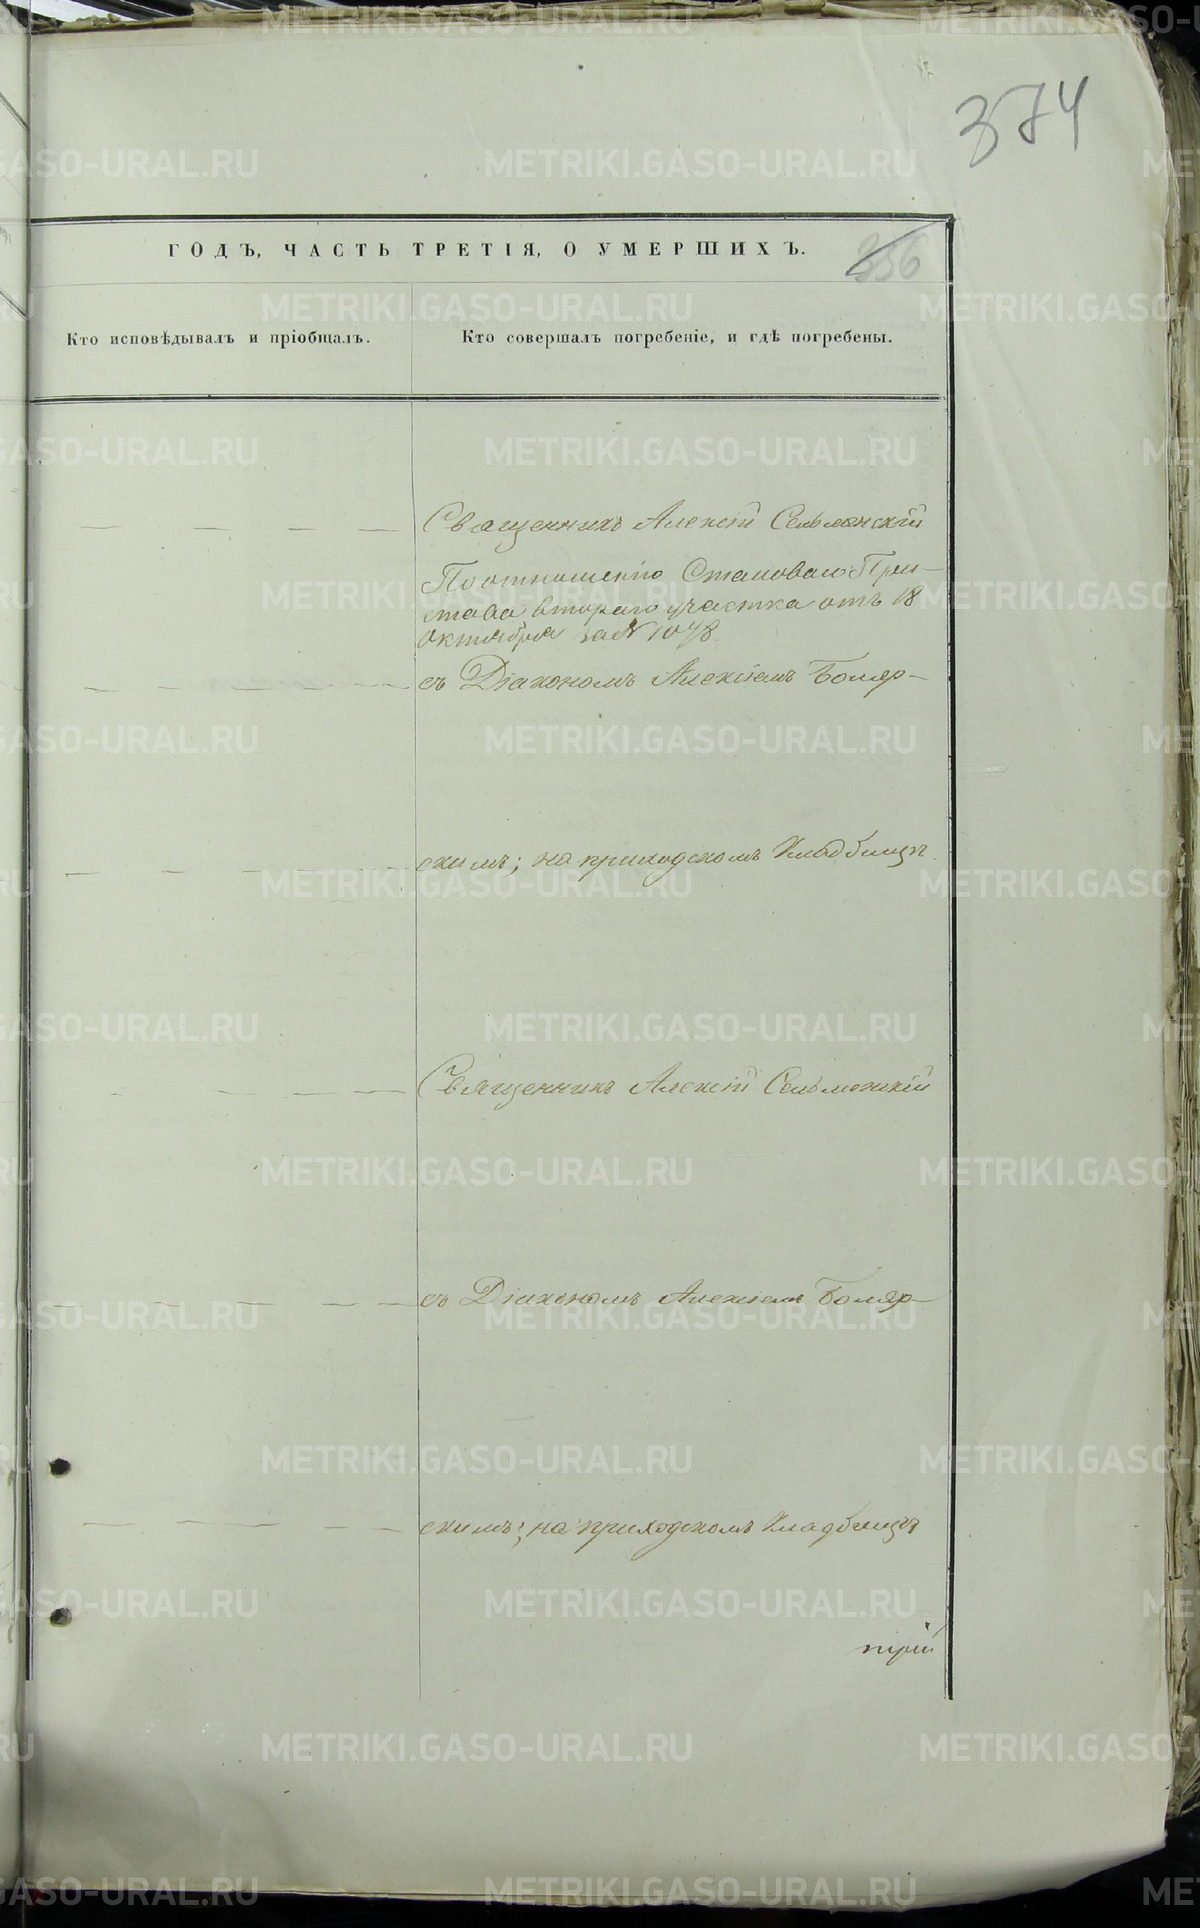 374
ГОДЪ, ЧАСТЬ ТРЕТІЯ, О УМЕРШИХЪ.
356
Кто исповѣдывалъ и пріобщалъ.
Кто совершалъ погребеніе, и гдѣ погребены.
Священникъ Алексій Сельменскій
По отношенію Становаго При-
става втораго участка отъ 18
октября за № 1078.
съ Діакономъ Алексіемъ Бояр-
скимъ; на приходскомъ кладбищѣ
Священникъ Алексій Сельменскій
съ Діакономъ Алексіемъ Бояр-
скимъ; на приходскомъ кладбищѣ
METRIKI.GASO-URAL.RU